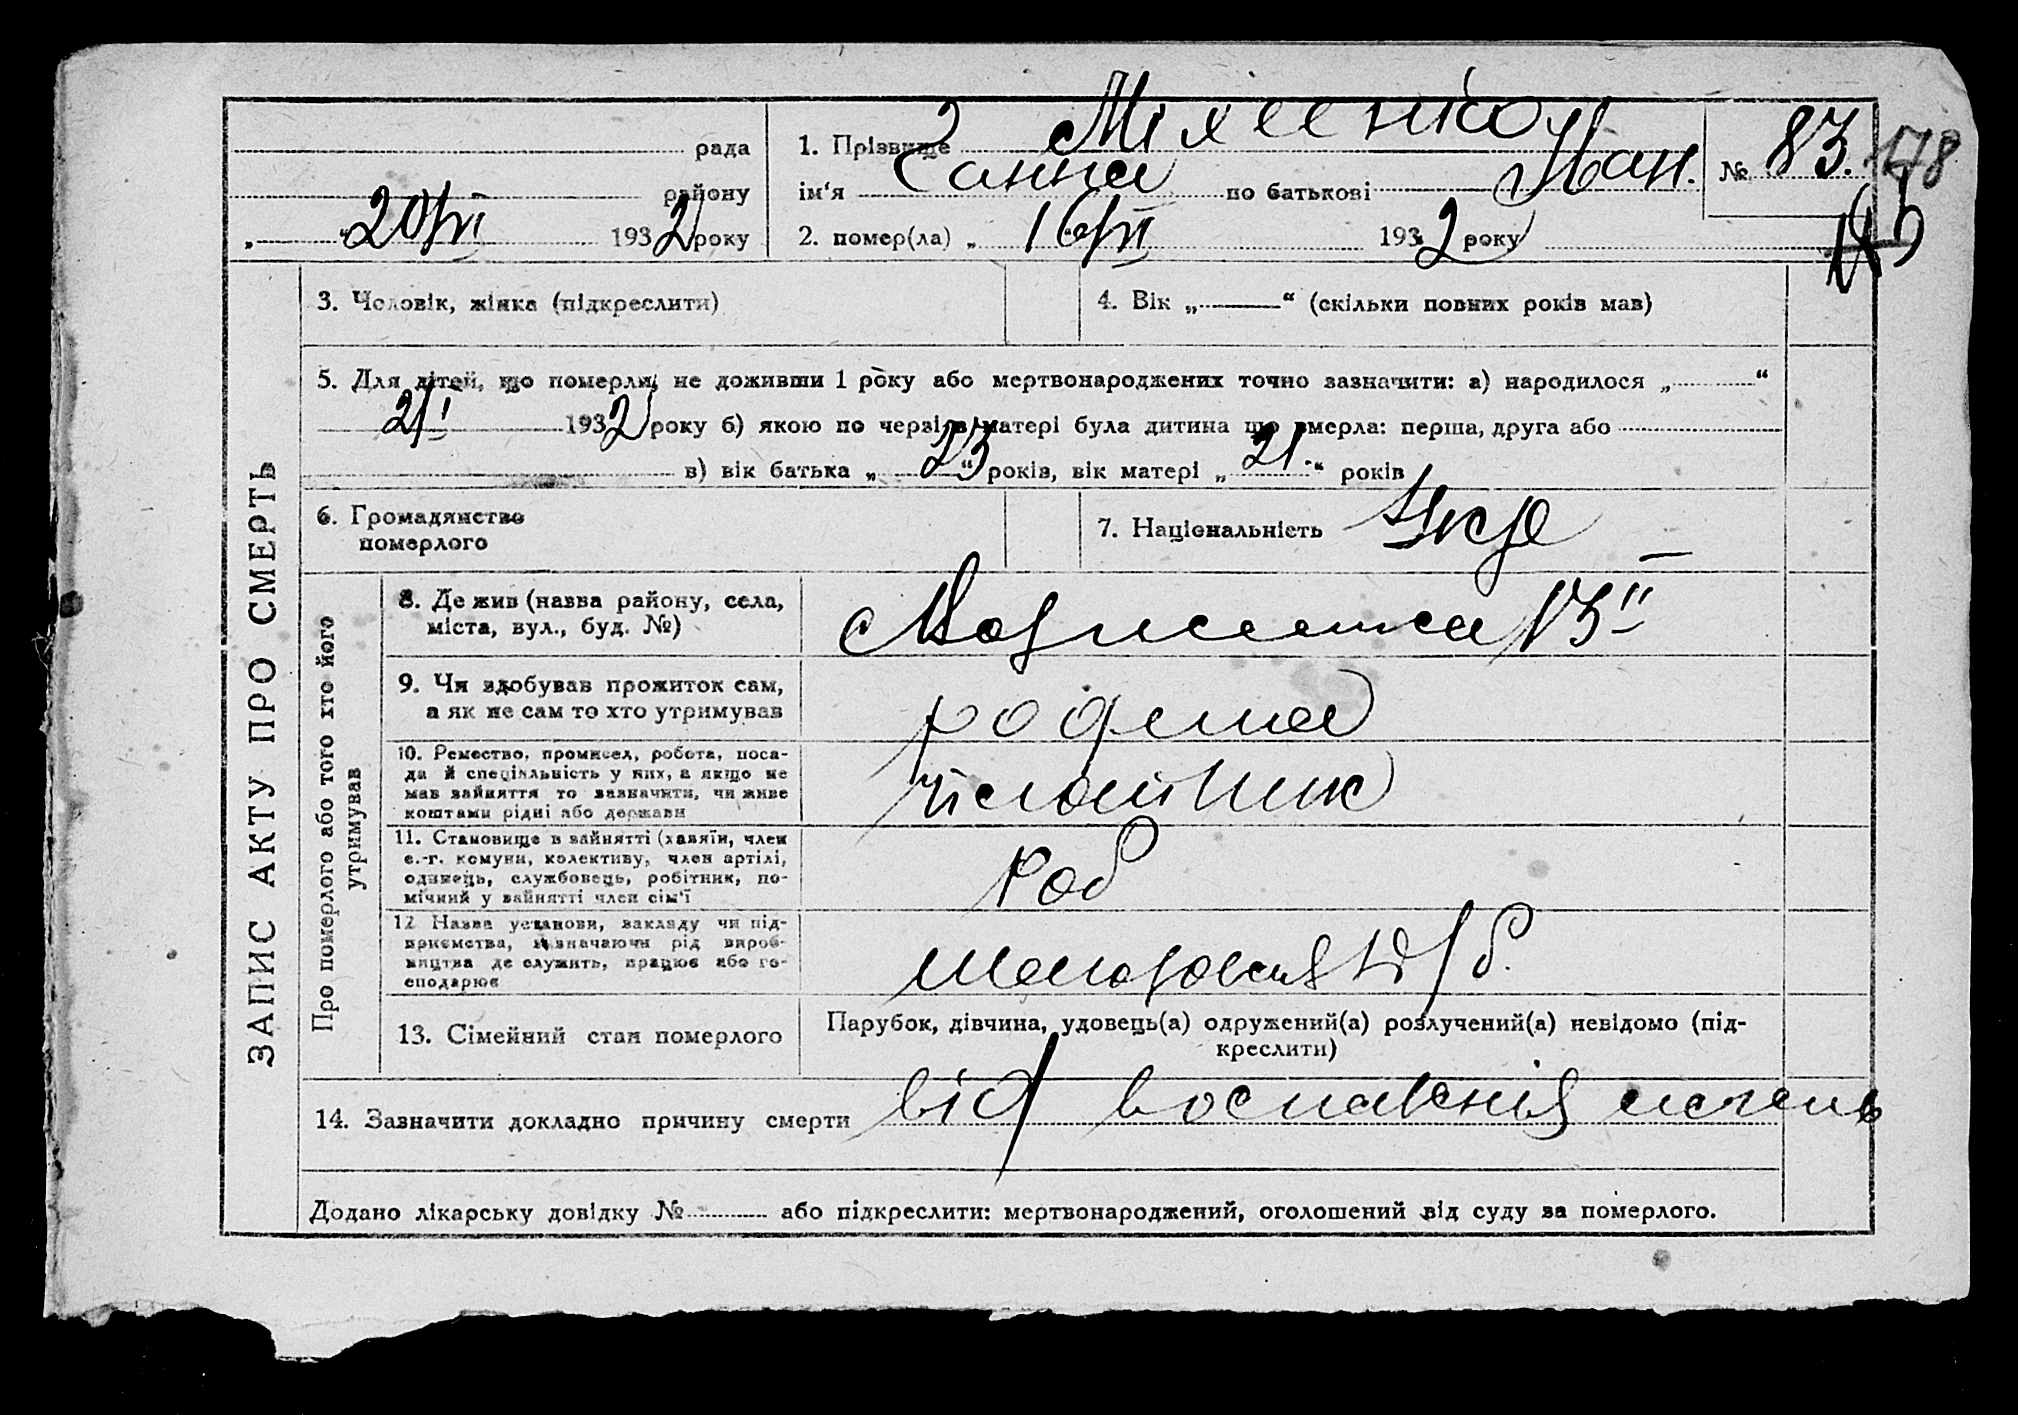 рада
району
„ “ 20/VI 1932 року
1. Прізвище Міхеенко
ім'я Ганна по батькові Іван.
2. помер(ла) „ 16/VI 1932 року
№ 83. 178
3. Чоловік, жінка (підкреслити)
4. Вік „ “ (скільки повних років мав)
5. Для дітей, що померли, не доживши 1 року або мертвонароджених точно зазначити: а) народилося „ “
2/I 1932 року б) якою по черзі в матері була дитина що вмерла: перша, друга або
в) вік батька „ 23 “ років, вік матері „ 21. “ років
6. Громадянство
померлого
7. Національність Укр
ЗАПИС АКТУ ПРО СМЕРТЬ
Про померлого або того хто його
утримував
8. Де жив (назва району, села,
міста, вул., буд. №)
13
9. Чи здобував прожиток сам,
а як не сам то хто утримував
родина
10. Ремество, промисел, робота, поса-
да й спеціяльність у них, а якщо не
мав зайняття то зазначити, чи живе
коштами рідні або держави
11. Становище в зайнятті (хазяїн, член
с.-г. комуни, колективу, член артілі,
одинець, службовець, робітник, по-
мічний у зайнятті член сім'ї
Роб
12. Назва установи, закладу чи під-
приємства, зазначаючи рід вироб-
ництва де служить, працює або го-
сподарює
13. Сімейний стан померлого
Парубок, дівчина, удовець(а) одружений(а) розлучений(а) невідомо (під-
креслити)
14. Зазначити докладно причину смерти від воспаленія
Додано лікарську довідку № або підкреслити: мертвонароджений, оголошений від суду за померлого.